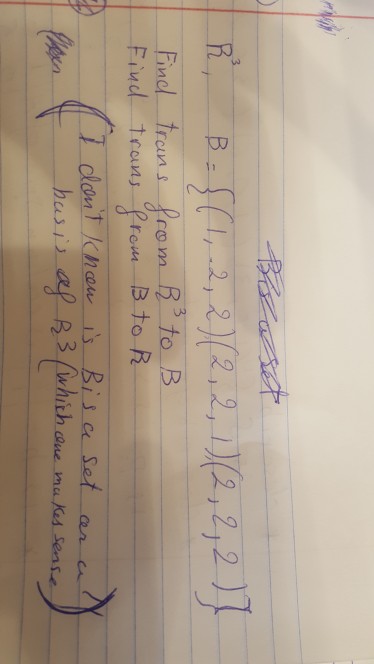 R³, B = {(1, 2, 2)(2, 2, 1)(2, 2, 2)}
Find trans from R³ to B
Find trans from B to R
(I don't know is B is a set or a
basis of R³ (which one makes sense))